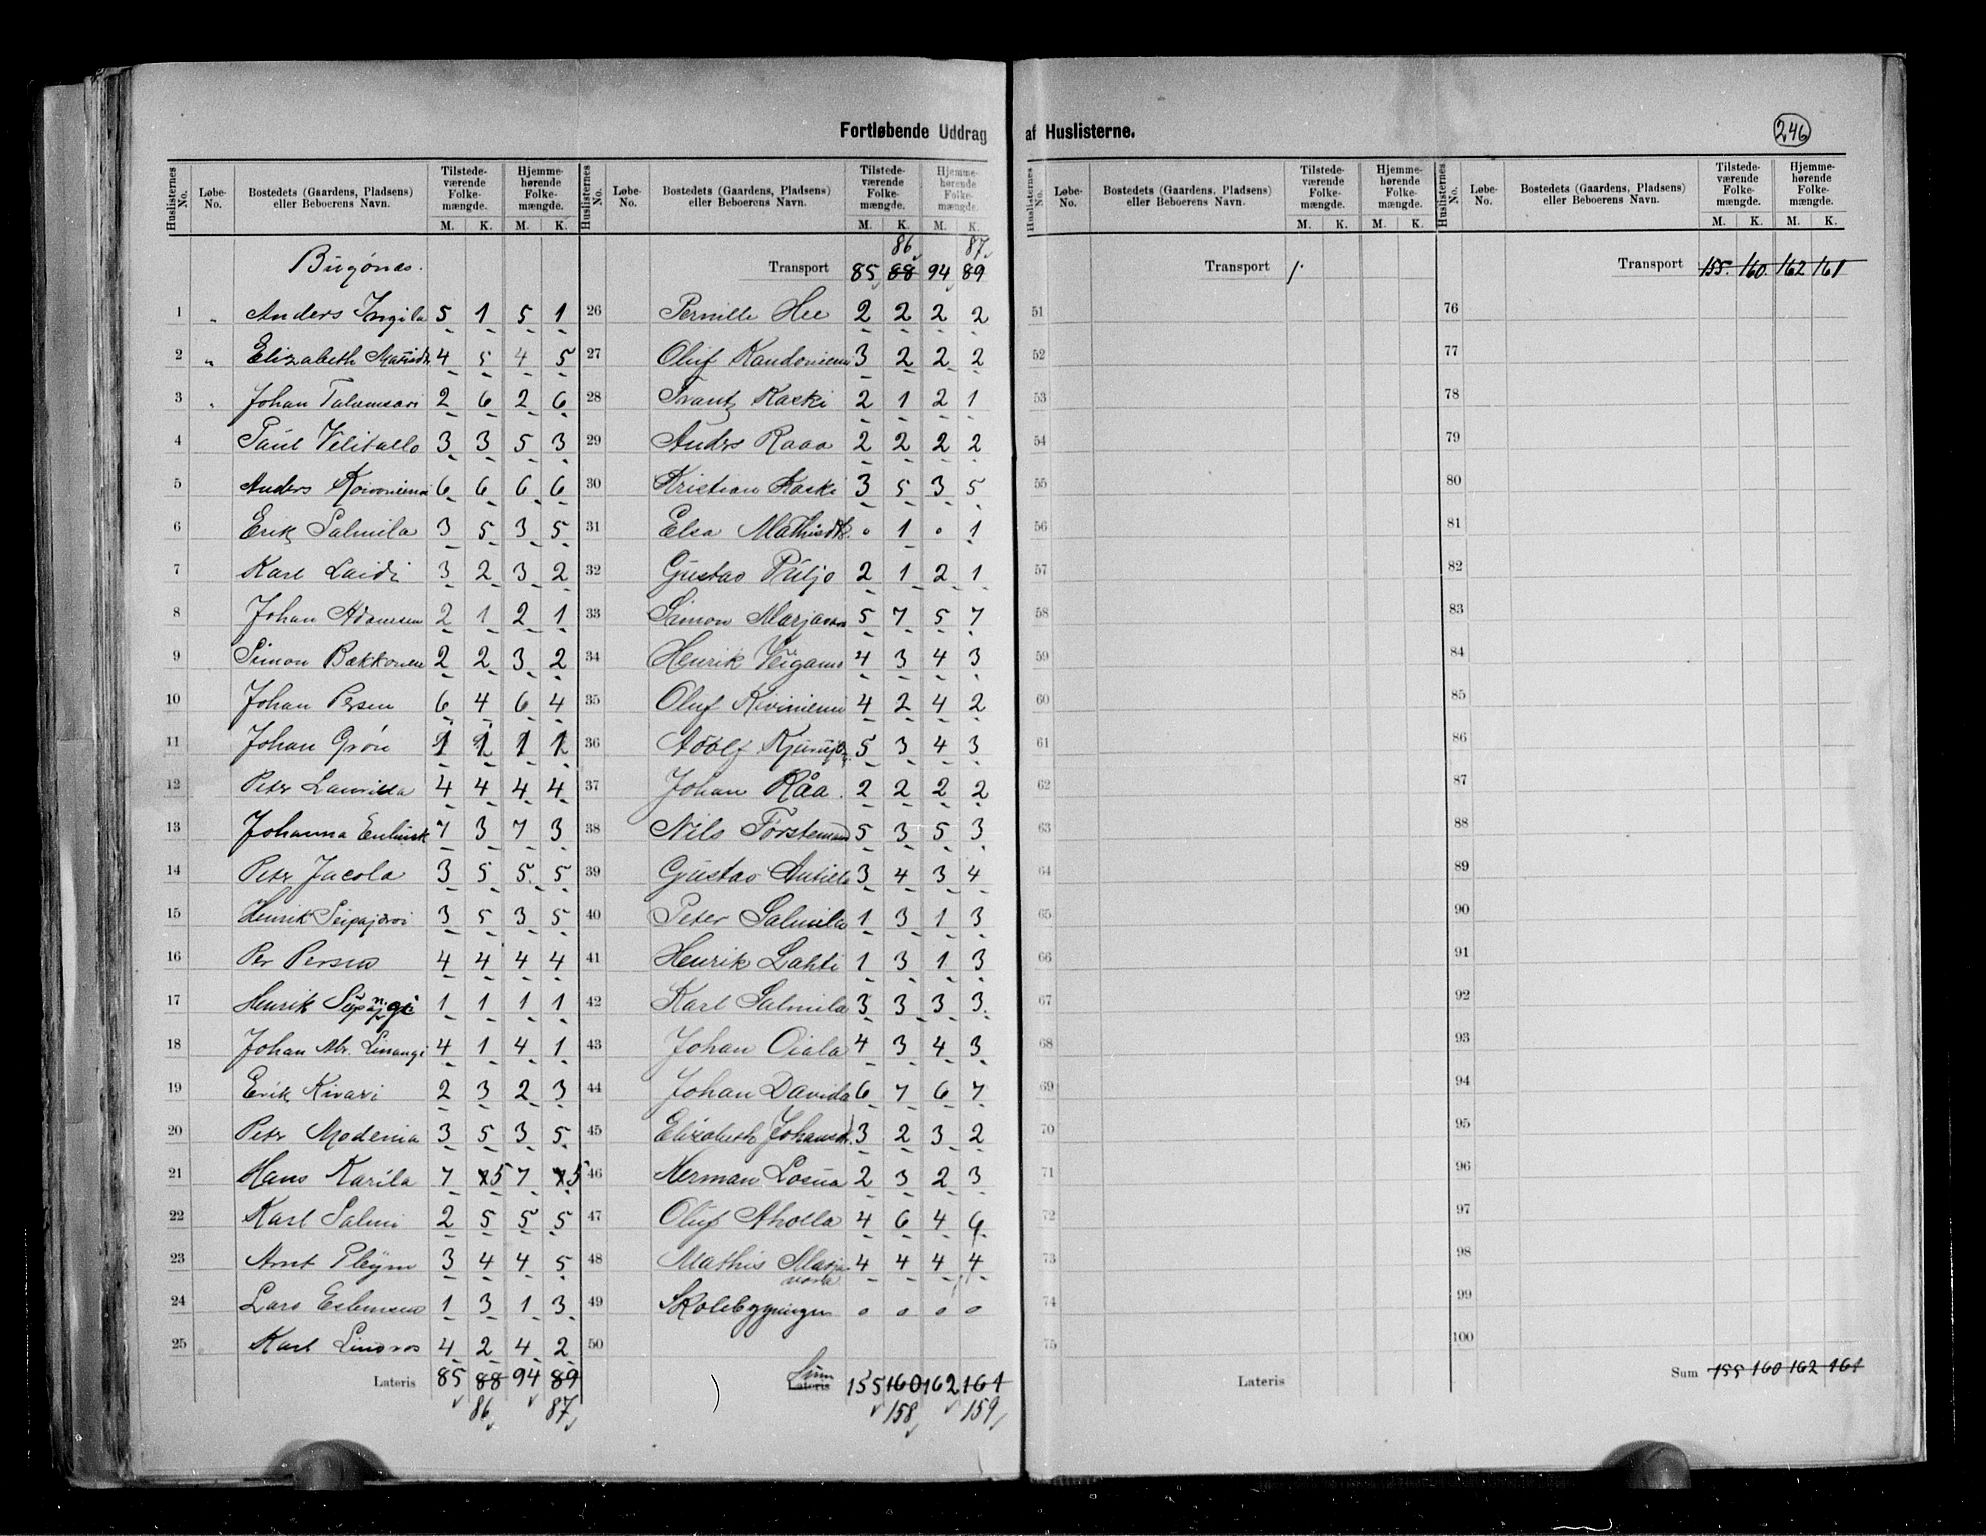 Fortløbende Uddrag af Huslisterne.
246
Huslisternes No. Løbe-No. Bostedets (Gaardens, Pladsens) eller Beboerens Navn. Tilstedeværende Folkemængde. M. K. Hjemmehørende Folkemængde. M. K.
Bugönæs.
1 " Anders Ingila 5 1 5 1
2 " Elizabeth 4 5 4 5
3 " Johan Talumsari 2 6 2 6
4 Paul Velitallo 3 3 5 3
5 Anders 6 6 6 6
6 Erik Salmila 3 5 3 5
7 Karl Laidi 3 2 3 2
8 Johan Adamsen 2 1 2 1
9 Simon Bækkonen 2 2 3 2
10 Johan Persen 6 4 6 4
11 Johan Grön 1 1
12 Petr Laurilla 4 4 4 4
13 Johanna 7 3 7 3
14 Petr Jacola 3 5 5 5
15 Henrik Seipajærvi 3 5 3 5
16 Per Persen 4 4 4 4
17 Henrik 1 1 1 1
18 Johan Abr. Linangi 4 1 4 1
19 Erik Kivari 2 3 2 3
20 Petr Modenia 3 5 3 5
21 Hans Karila 7 5 7 5
22 Karl Salmi 2 5 5 5
23 Arnt Pleym 3 4 4 5
24 Lars Esbensen 1 3 1 3
25 Karl Lindros 4 2 4 2
Lateris 85 88 94 89
86 87
Huslisternes No. Løbe-No. Bostedets (Gaardens, Pladsens) eller Beboerens Navn. Tilstedeværende Folkemængde. M. K. Hjemmehørende Folkemængde. M. K.
86 87
Transport 85 88 94 89
26 Pernille Hee 2 2 2 2
27 Oluf 3 2 2 2
28 Frantz Kaski 2 1 2 1
29 Anders Raaa 2 2 2 2
30 Kristian Kaski 3 5 3 5
31 Elsa Mathisdtr. 0 1 0 1
32 Gustav Piiljo 2 1 2 1
33 Simon 5 7 5 7
34 Henrik 4 3 4 3
35 Oluf Kiviniemi 4 2 4 2
36 Adolf 5 3 4 3
37 Johan Råa. 2 2 2 2
38 Nils Förstemand 5 3 5 3
39 Gustav Antilla 3 4 3 4
40 Peter Salmila 1 3 1 3
41 Henrik Lahti 1 3 1 3
42 Karl Salmila 3 3 3 3
43 Johan Oiala 4 3 4 3
44 Johan Davida 6 7 6 7
45 Elizabeth Johansdtr. 3 2 3 2
46 Herman Losua 2 3 2 3
47 Oluf Aholla 4 6 4 6
48 Mathis Marja
vaara 4 4 4 4
49 Skolebygningen 0 0 0 0
50
Sum
Lateris 155 160 162 161
158 159
Huslisternes No. Løbe-No. Bostedets (Gaardens, Pladsens) eller Beboerens Navn. Tilstedeværende Folkemængde. M. K. Hjemmehørende Folkemængde. M. K.
Transport
51
52
53
54
55
56
57
58
59
60
61
62
63
64
65
66
67
68
69
70
71
72
73
74
75
Lateris
Huslisternes No. Løbe-No. Bostedets (Gaardens, Pladsens) eller Beboerens Navn. Tilstedeværende Folkemængde. M. K. Hjemmehørende Folkemængde. M. K.
Transport 155. 160 162 161
76
77
78
79
80
81
82
83
84
85
86
87
88
89
90
91
92
93
94
95
96
97
98
99
100
Sum 155 160 162 161